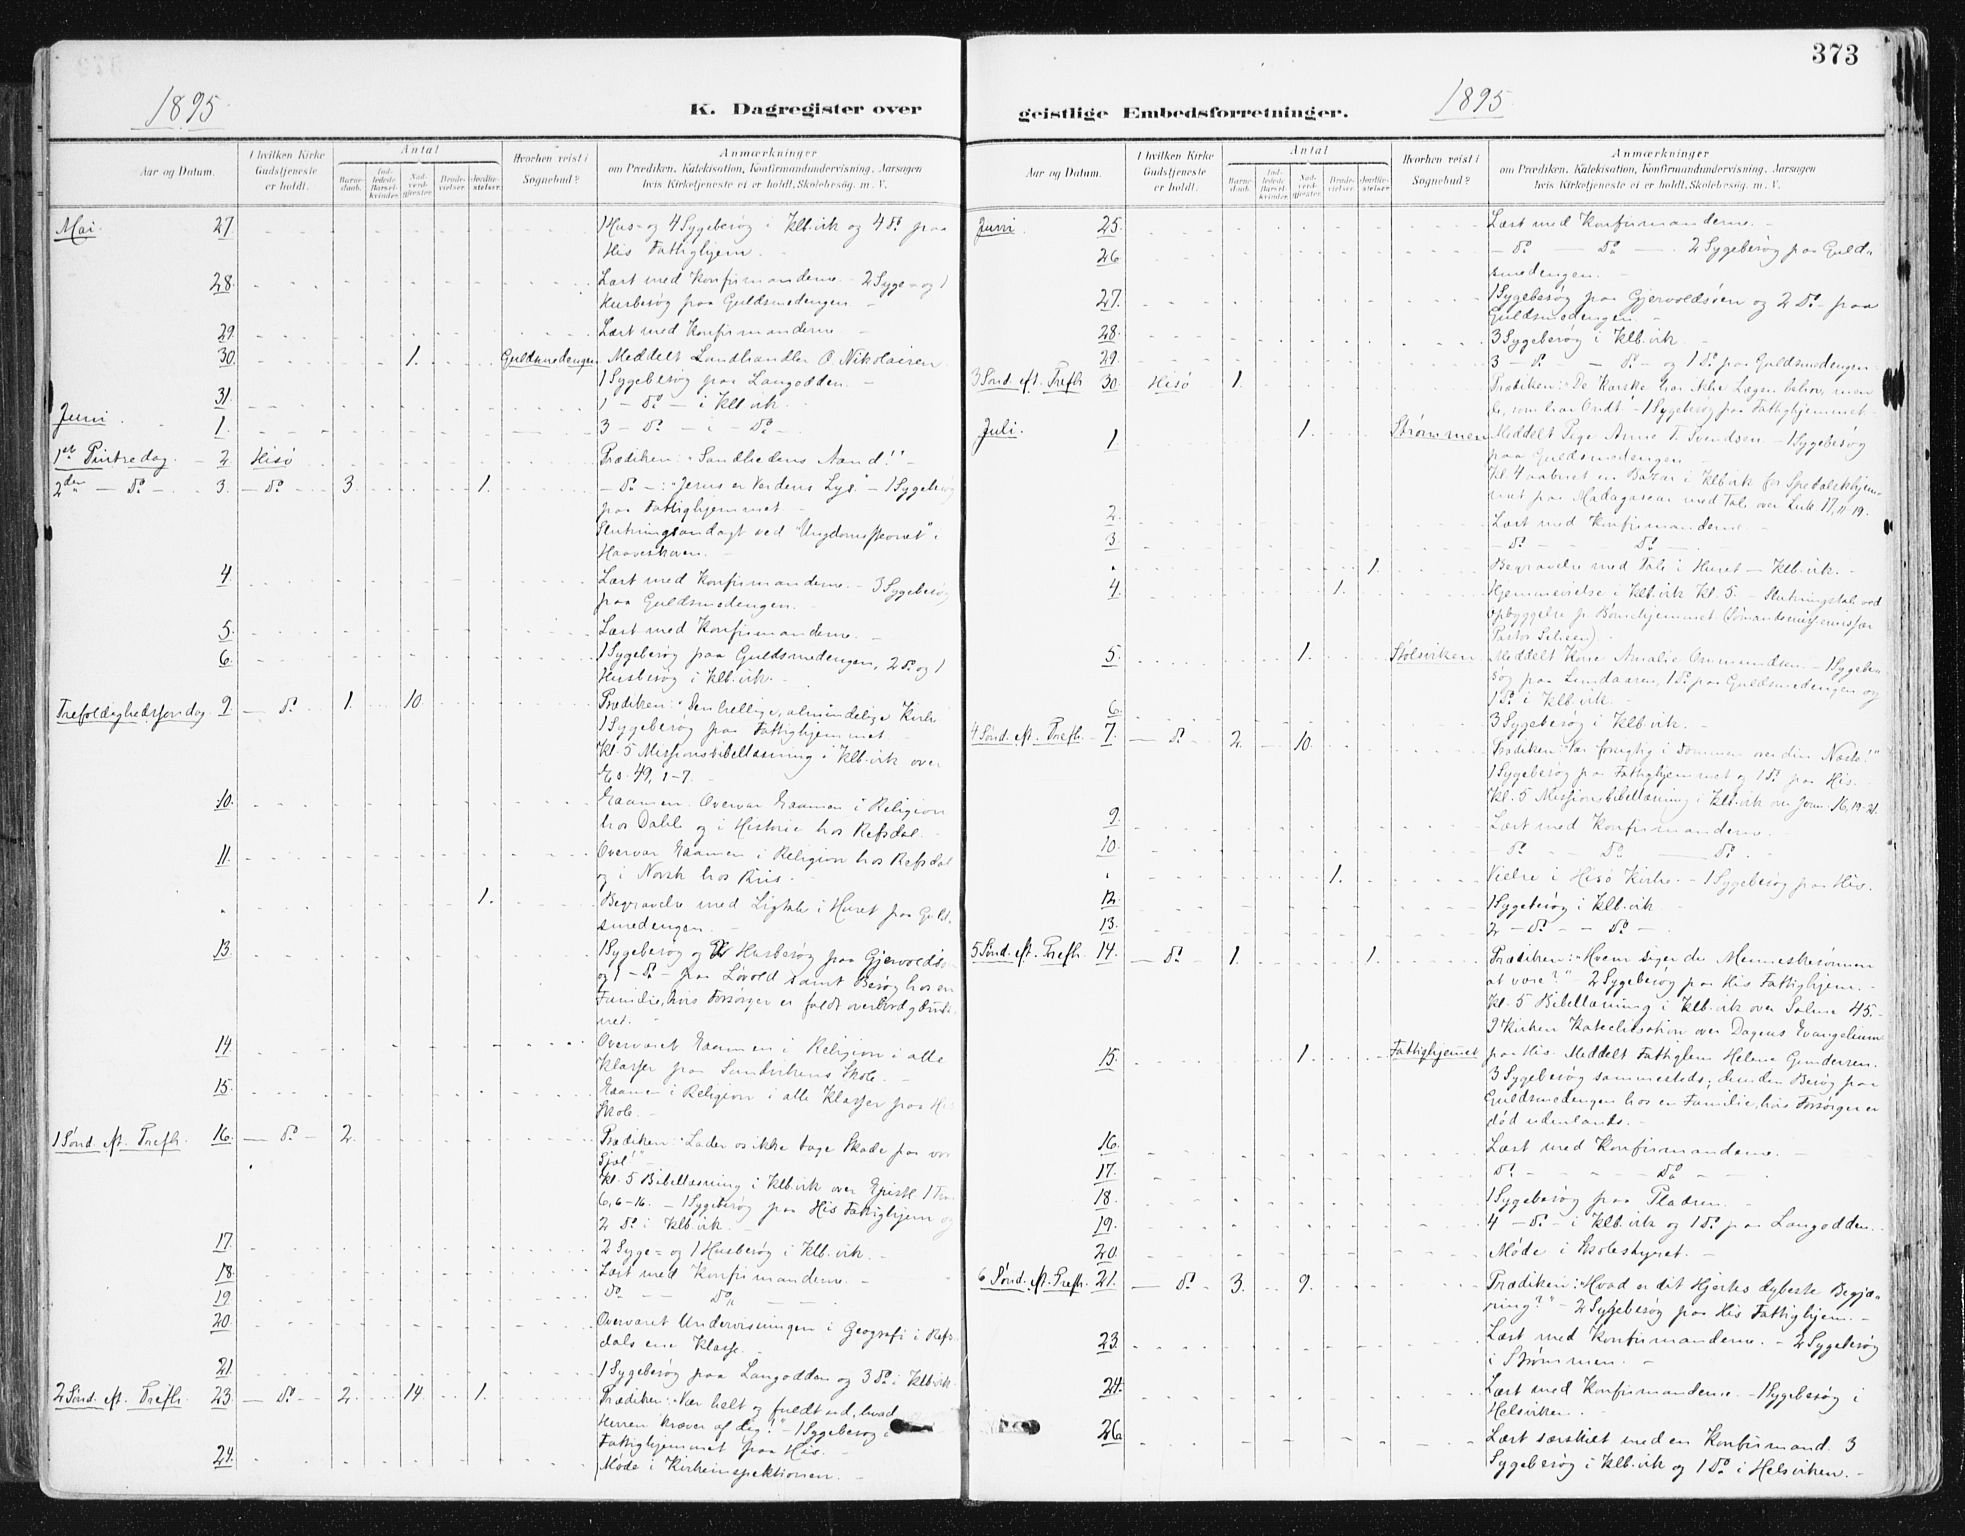 373
1895
K. Dagregister over
Aar og Datum.
I hvilken Kirke
Gudstjeneste
er holdt.
Antal
Barne-
daab.
Ind-
ledede
Barsel-
kvinder.
Nad-
verd-
gjester.
Brude-
vielser.
Jordfæ-
stelser.
Hvorhen reist i
Sognebud?
Anmærkninger
om Prædiken, Katekisation, Konfirmandundervisning, Aarsagen
hvis Kirketjeneste ei er holdt, Skolebesøg, m. V.
Mai. 27 1 Hus- og 4 Sygebesøg i Klb.vik og 4 Do paa
His Fattighjem.
28. Læst med Konfirmanderne. - 2 Syge- og 1
Husbesøg paa Guldsmedengen
29. Læst med Konfirmanderne
30. 1. Guldsmedengen Meddelt Landhandler O. Nikolaisen
1 Sygebesøg paa Langodden. -
31. 1 - Do - i Klb.vik.
Juni. 1. 3 - Do - i - Do -
1ste Pintsedag. 2 Hisø Prædiken: "Sandhedens Aand!" -
2den " - Do - 3. - Do - 3. 1. - Do - : "Jesus er Verdens Lys." - 1 Sygebesøg
paa Fattighjemmet -
Slutningsandagt ved "Ungdomsstevnet" i
Haaveskoven. -
4. Læst med Konfirmanderne. - 3 Sygebesøg
paa Guldsmedengen. -
5. Læst med Konfirmanderne. -
6. 1 Sygebesøg paa Guldsmedengen, 2 Do og 1
Husbesøg i Klb.vik. -
Trefoldighedssøndag 9 - Do 1. 10. Prædiken: "Den hellige, almindelige Kirke
1 Sygebesøg paa Fattighjemmet -
Kl. 5 Missionsbibellæsning i Klb.vik over
Es. 49, 1-7. -
10. Examen. Overvar Examen i Religion
hos Dahl og i Historie hos Refsdal. -
11. Overvar Examen i Religion hos Refsdal
og i Norsk hos Riis. -
1. Begravelse med Ligtale i Huset paa Guld-
smedengen. -
13. 1 Sygebesøg og Husbesøg paa Gjervoldsø
og 1 - Do - paa Løvold samt Besøg hos en
Familie, hvis Forsørger er faldt overbord og druk-
net. -
14. Overvaret Examen i Religion i alle
Klasser paa Sandvikens Skole. -
15. Examen i Religion i alle Klasser paa His
Skole. -
1 Sønd. eft. Trefh. 16. - Do - 2. Prædiken: "Lader os ikke tage Skade paa vor
Sjæl!" -
Kl. 5 Bibellæsning i Klb.vik over Epistl. 1 Tim
6, 6-16. - 1 Sygebesøg paa His Fattighjem og
2 Do i Klb.vik. -
17. 2 Syge- og 1 Husbesøg i Klb.vik. -
18. Læst med Konfirmanderne. -
19 Do - - Do - -
20. Overvaret Undervisningen i Geografi i Refs-
dals ene Klasse. -
21. 1 Sygebesøg paa Langodden og 3 Do i Klb.vik.
2 Sønd. eft. Trefh. 23. - Do - 2. 14 1. Prædiken: "Vær helt og fuldt ud, hvad
Herren kræver af dig!" - 1 Sygebesøg i
Fattighjemmet paa His. -
24. Møde i Kirkeinspektionen. -
geistlige Embedsforretninger.
1895
Aar og Datum.
I hvilken Kirke
Gudstjeneste
er holdt.
Antal
Barne-
daab.
Ind-
ledede
Barsel-
kvinder.
Nad-
verd-
gjester.
Brude-
vielser.
Jordfæ-
stelser.
Hvorhen reist i
Sognebud?
Anmærkninger
om Prædiken, Katekisation, Konfirmandundervisning, Aarsagen
hvis Kirketjeneste ei er holdt, Skolebesøg, m. V.
Juni. 25. Læst med Konfirmanderne. -
26 - Do - Do - . 2 Sygebesøg paa Guld-
smedengen. -
27. 1 Sygebesøg paa Gjervoldsøen og 2 Do - paa
Guldsmedengen. -
28. 3 Sygebesøg i Klb.vik. -
29. 3 - Do - - Do - og 1 Do paa Guldsmedengen.
3 Sønd. eft. Trefh. 30. Hisø 1. Prædiken: "De Karske har ikke Lægen behov, men
de, som har Ondt." - 1 Sygebesøg paa Fattighjemmet -
Juli. 1 1. Strømmen Meddelt Pige Anne T. Svendsen - 1 Sygebesøg
paa Guldsmedengen -
Kl. 4 aabnet en Bazar i Klb.vik for Spedalskhjem-
met paa Madagascar med Tale over Luk. 17, 11-19.
2. Læst med Konfirmanderne. -
3. - Do - Do - .
1. Begravelse med Tale i Huset - Klb.vik. -
4. 1. Hjemmevielse i Klb.vik Kl. 5. - Slutningstale ved
Opbyggelse p. Bønnehjemmet (Sømandsmissionær
Pastor .
5. 1. Stølsviken Meddelt Kone Amalie Ommundsen. - 1 Sygebe-
søg paa , 1 Do paa Guldsmedengen og
1 Do i Klb.vik. -
6. 3 Sygebesøg i Klb.vik. -
4 Sønd. eft. Trefh. 7. - Do - 2. 10. Prædiken: "Vær forsigtig i Dommen over din Næste!"
1 Sygebesøg paa Fattighjemmet og 1 Do paa His. -
Kl. 5 Missionsbibellæsning i Klb.vik over Jerm. 16, 19-21.
9. Læst med Konfirmanderne. -
10. Do - Do - Do - .
1. Vielse i Hisø Kirke. - 1 Sygebesøg paa His.
12. 1 Sygebesøg i Klb.vik
13. 2 - Do - - Do - .
5 Sønd. eft. Trefh. 14. - Do - 1. 1. Prædiken: "Hvem siger du Menneskesønnen
at være?" - 2 Sygebesøg paa His Fattighjem. -
Kl. 5 Bibellæsning i Klb.vik over Salme 45. -
I Kirken Katechisation over Dagens Evangelium
15. 1. Fattighjemet paa His. Meddelt Fattiglem Helene Gundersen.
3 Sygebesøg sammesteds; desuden Besøg paa
Guldsmedengen hos en Familie, hvis Forsørger er
død udenlands. -
16. Læst med Konfirmanderne. -
17. Do - - - Do - -
18. 1 Sygebesøg paa Pladsen. -
19. 4 - Do - i Klb.vik og 1 Do paa Langodden. -
20. Møde i Skolestyret. -
6 Sønd. eft. Trefh. 21. - Do - 3. 9. Prædiken: "Hvad er dit Hjertes dybeste Begjæ-
ring?" - 2 Sygebesøg paa His Fattighjem. -
23. Læst med Konfirmanderne. - 2 Sygebesøg
i Strømmen. -
24. Læst med Konfirmanderne. - 1 Sygebesøg i
Helsviken. -
26 Læst særskilt med en Konfirmand. 3
Sygebesøg i Klb.vik og 1 Do i Helsviken. -